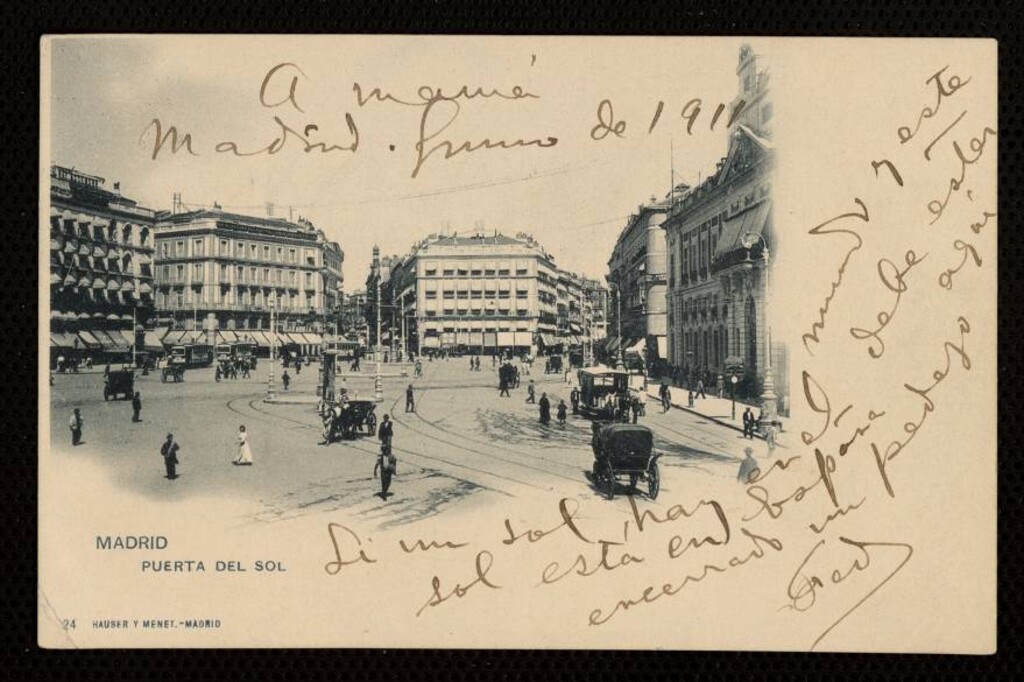 A mamá
Madrid. Junio de 1911
Si un sol hay en el mundo y este
sol está en España debe estar
encerrado un pedazo aquí
Fred
MADRID
PUERTA DEL SOL
24 HAUSER Y MENET.-MADRID